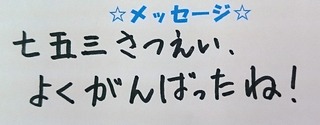 ☆メッセージ☆
七五三さつえい、
よくがんばったね!